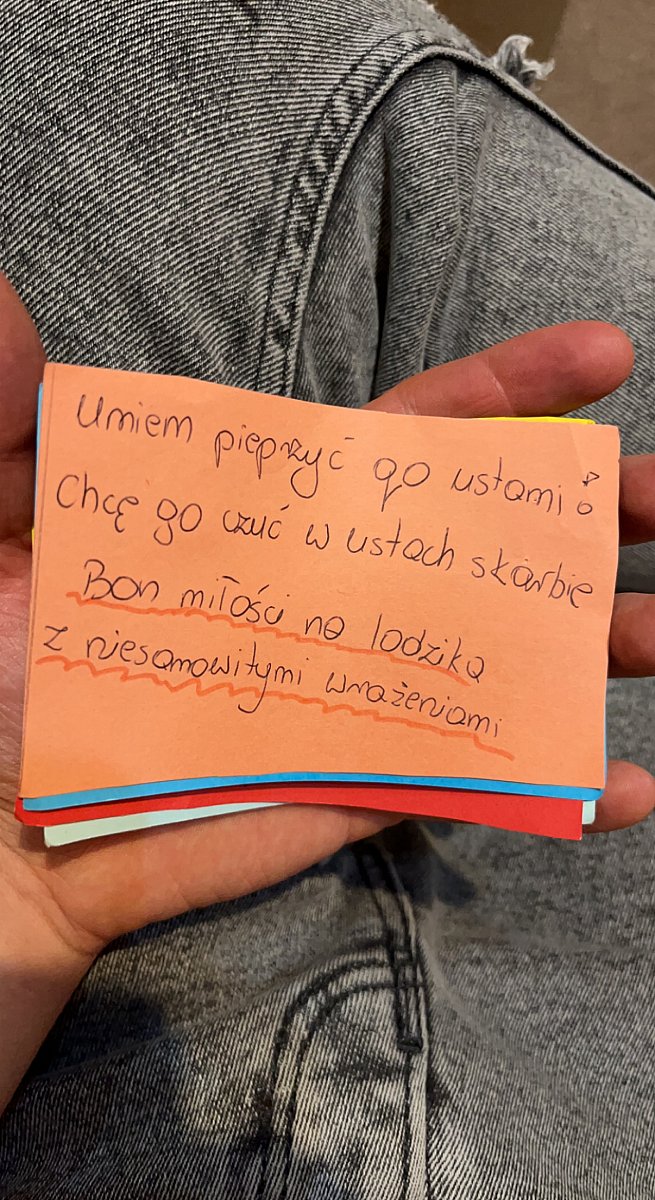 Umiem pieprzyć go ustami
Chcę go czuć w ustach skarbie
Bon miłości na lodzika
z niesamowitymi wrażeniami